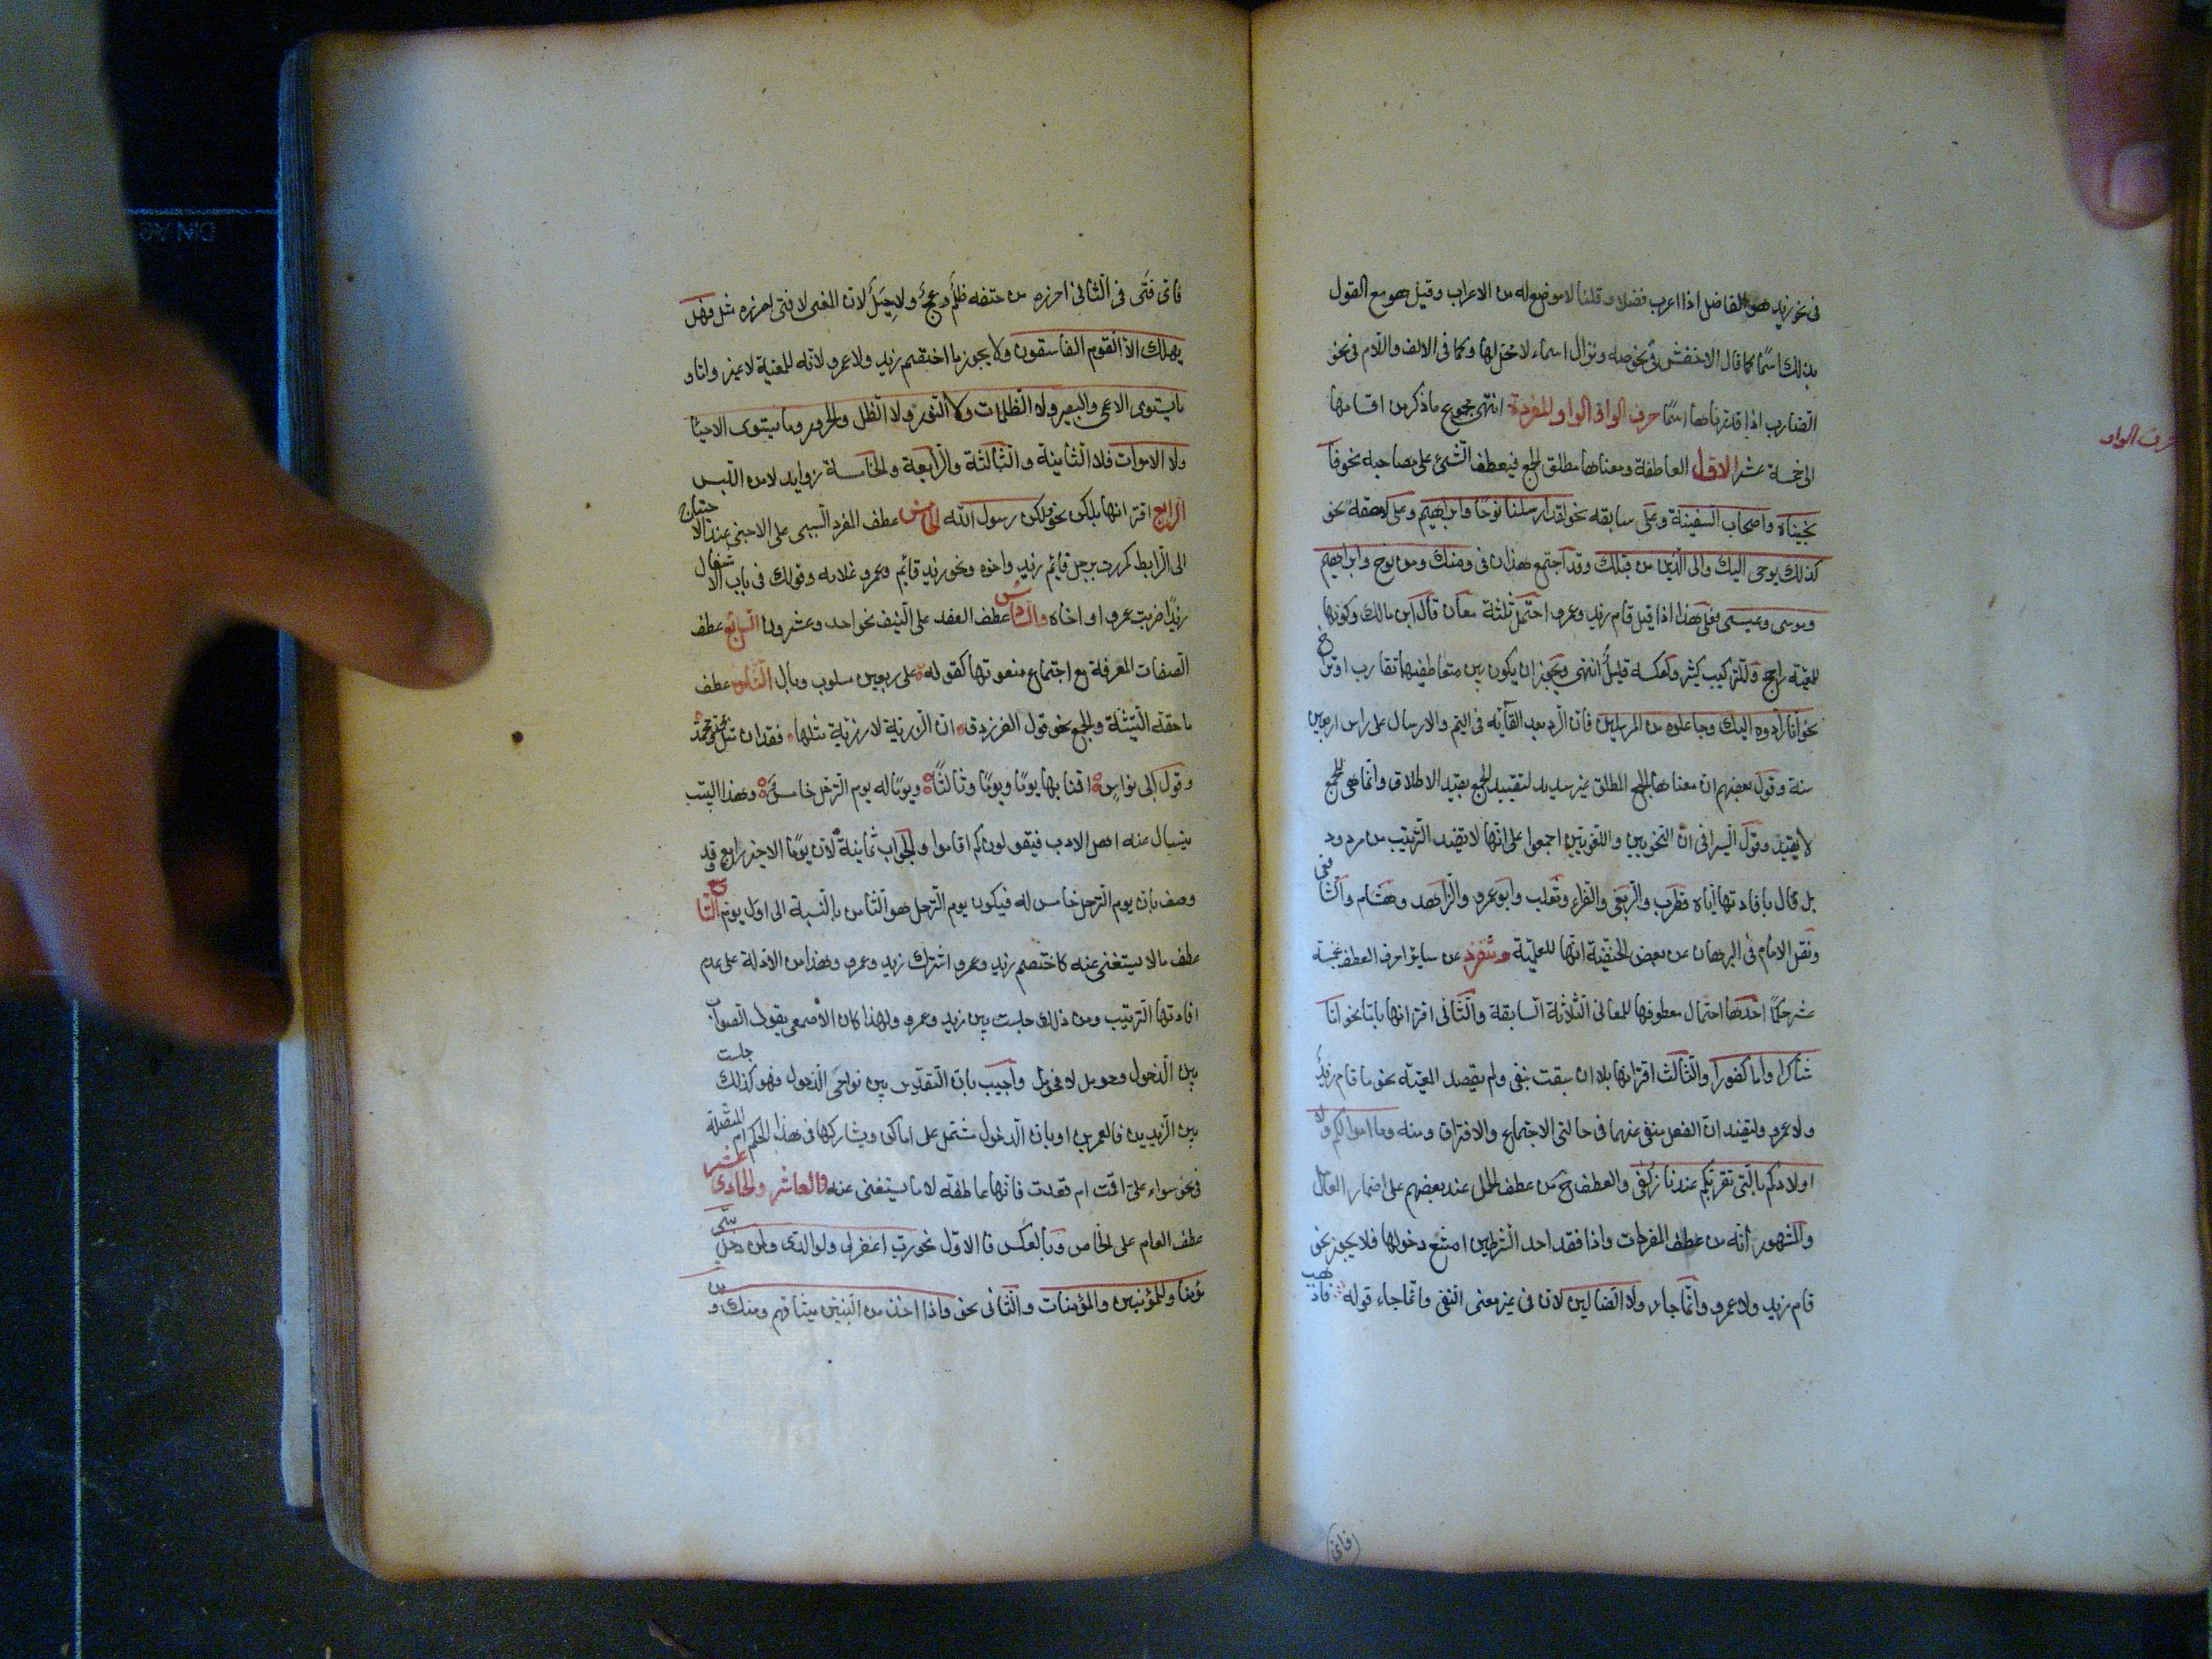 فى نحو زيد هو الفاضل اذا اعرب فصلا وقلنا لا موضع له من الاعراب وقيل هو مع القول
بذلك اسمًا كما قال الاخفش فى نحو صه ونزال اسماء لا محل لها وكما فى الالف واللام فى نحو
الضارب اذا قدرناهما اسمًا حرف الواو الواو المفردة انتهى مجموع ما ذكر من اقسامها
الى خمسة عشر الاوّل العاطفة ومعناها مطلق الجمع فيعطف الشئ على مصاحبه نحو فا
نجيناه واصحاب السفينة وعلى سابقه نحو لقد ارسلنا نوحًا وابراهيم وعلى لاحقه نحو
كذلك يوحى اليك والى الذين من قبلك وقد اجتمع هذان فى ومنك ومن نوح وابراهيم
وموسى وعيسى فعلى هذا اذا قيل قام زيد وعمرو احتمل ثلثة معان قال ابن مالك وكونها
للمعيّة راجح وللترتيب كثير ولعكسه قليل انتهى ويجوز ان يكون بين متعاطفيها تقارب او تراخ
نحو انا رادّوه اليك وجاعلوه من المرسلين فان الرد بعيد القائه فى اليم والارسال على راس اربعين
سنة وقول بعضهم ان معناها الجمع المطلق غير سديد لتقييد الجمع بقيد الاطلاق وانّما هى للجمع
لا بقيد وقول السيرافى انّ النحويين واللغويّين اجمعوا على انّها لا تفيد الترتيب من مردود
بل قال بافادتها ايّاه قطرب والربعى والفراء وثعلب وابو عمرو والزاهد وهشام والشافعى
ونقل الامام فى البرهان عن بعض الحنفيّة انّها للمعيّة وتنفرد عن ساير احرف العطف بخمسة
عشر حكمًا احدها احتمال معطوفها للمعانى الثلاثة السابقة والثانى اقترانها بامّا نحو امّا
شاكرا واما كفورا والثالث اقترانها بلا ان سبقت بنفى ولم يقصد المعيّة نحو ما قام زيد
ولا عمرو ولتفيد انّ الفعل منفى عنهما فى حالتى الاجتماع والافتراق ومنه وما اموالكم ولا
اولادكم بالّتى تقربكم عندنا زلفى والعطف ح من عطف الجمل عند بعضهم على اضمار العامل
والمشهور انّه من عطف المفردات واذا فقد احد الشرطين امتنع دخولها فلا يجوز نحو
قام زيد ولا عمرو وانّما جاز ولا الضالين لان فى غير معنى النفى وانّما جاء قوله فاذهب
حرف الواو
فاى
فاى فتًى فى النّاس احرزه من حتفه ظلم دعج ولا جبل لان المعنى لا فتى احرزه مثل فهل
يهلك الّا القوم الفاسقون ولا يجوز ما اختصم زيد ولا عمرو لانّه للمعيّة لا غير وامّا و
ما يستوى الاعمى والبصير ولا الظلمات ولا النّور ولا الظل ولا الحرور وما يستوى الاحيا
ولا الاموات فلا الثانية والثالثة والرابعة والخامسة زوايد لا من اللبس
الرابع اقترانها بلكن نحو ولكن رسول اللّه الخامس عطف المفرد السببى على الاجنبى عند الاحتياج
الى الرابط كمررت برجل قايم زيد واخوه ونحو زيد قائم وعمرو غلامه وقولك فى باب الاشتغال
زيدًا ضربت عمروا واخاه والسّادس عطف العقد على النيّف نحو احد وعشرون السّابع عطف
الصفات المفرقة مع اجتماع منعوتها كقوله على ربعين مسلوب وبال الثامن عطف
ما حقه التثنية والجمع نحو قول الفرزدق انّ الرزيّة لا رزيّة مثلها فقدان مثل محمّد ومحمّد
وقول ابى نواس اقمنا بها يومًا ويومًا وثالثًا ويومًا له يوم الترحل خامس وهذا البيت
يتسال عنه اهل الادب فيقولون كم اقاموا والجواب ثمانية لان يومًا الاخير رابع قد
وصف بان يوم الترحل خامس له فيكون يوم الترحل هو الثامن بالنسبة الى اول يوم التاسع
عطف ما لا يستغنى عنه كاختصم زيد وعمرو اشترك زيد وعمرو وهذا من الادلة على عدم
افادتها الترتيب ومن ذلك جلست بين زيد وعمرو ولهذا كان الاصمعى يقول الصواب
بين الدّخول وحومل لا فحومل واجيب بان التقدير بين نواحى الدخول فهو كذلك جلست
بين الزيدين فالعمرين او بان الدخول مشتمل على اماكن ويشاركها فى هذا الحكم ام المتصلة
فى نحو سواء علىّ اقمت ام قعدت فانّها عاطفة لا ما يستغنى عنه والعاشر والحادى عشر
عطف العام على الخاص وبالعكس فالاوّل نحو رب اغفر لى ولوالدى ولمن دخل بيتى
مؤمنا وللمؤمنين والمؤمنات والثانى نحو واذا اخذنا من النبيّين ميثاقهم ومنك ومن